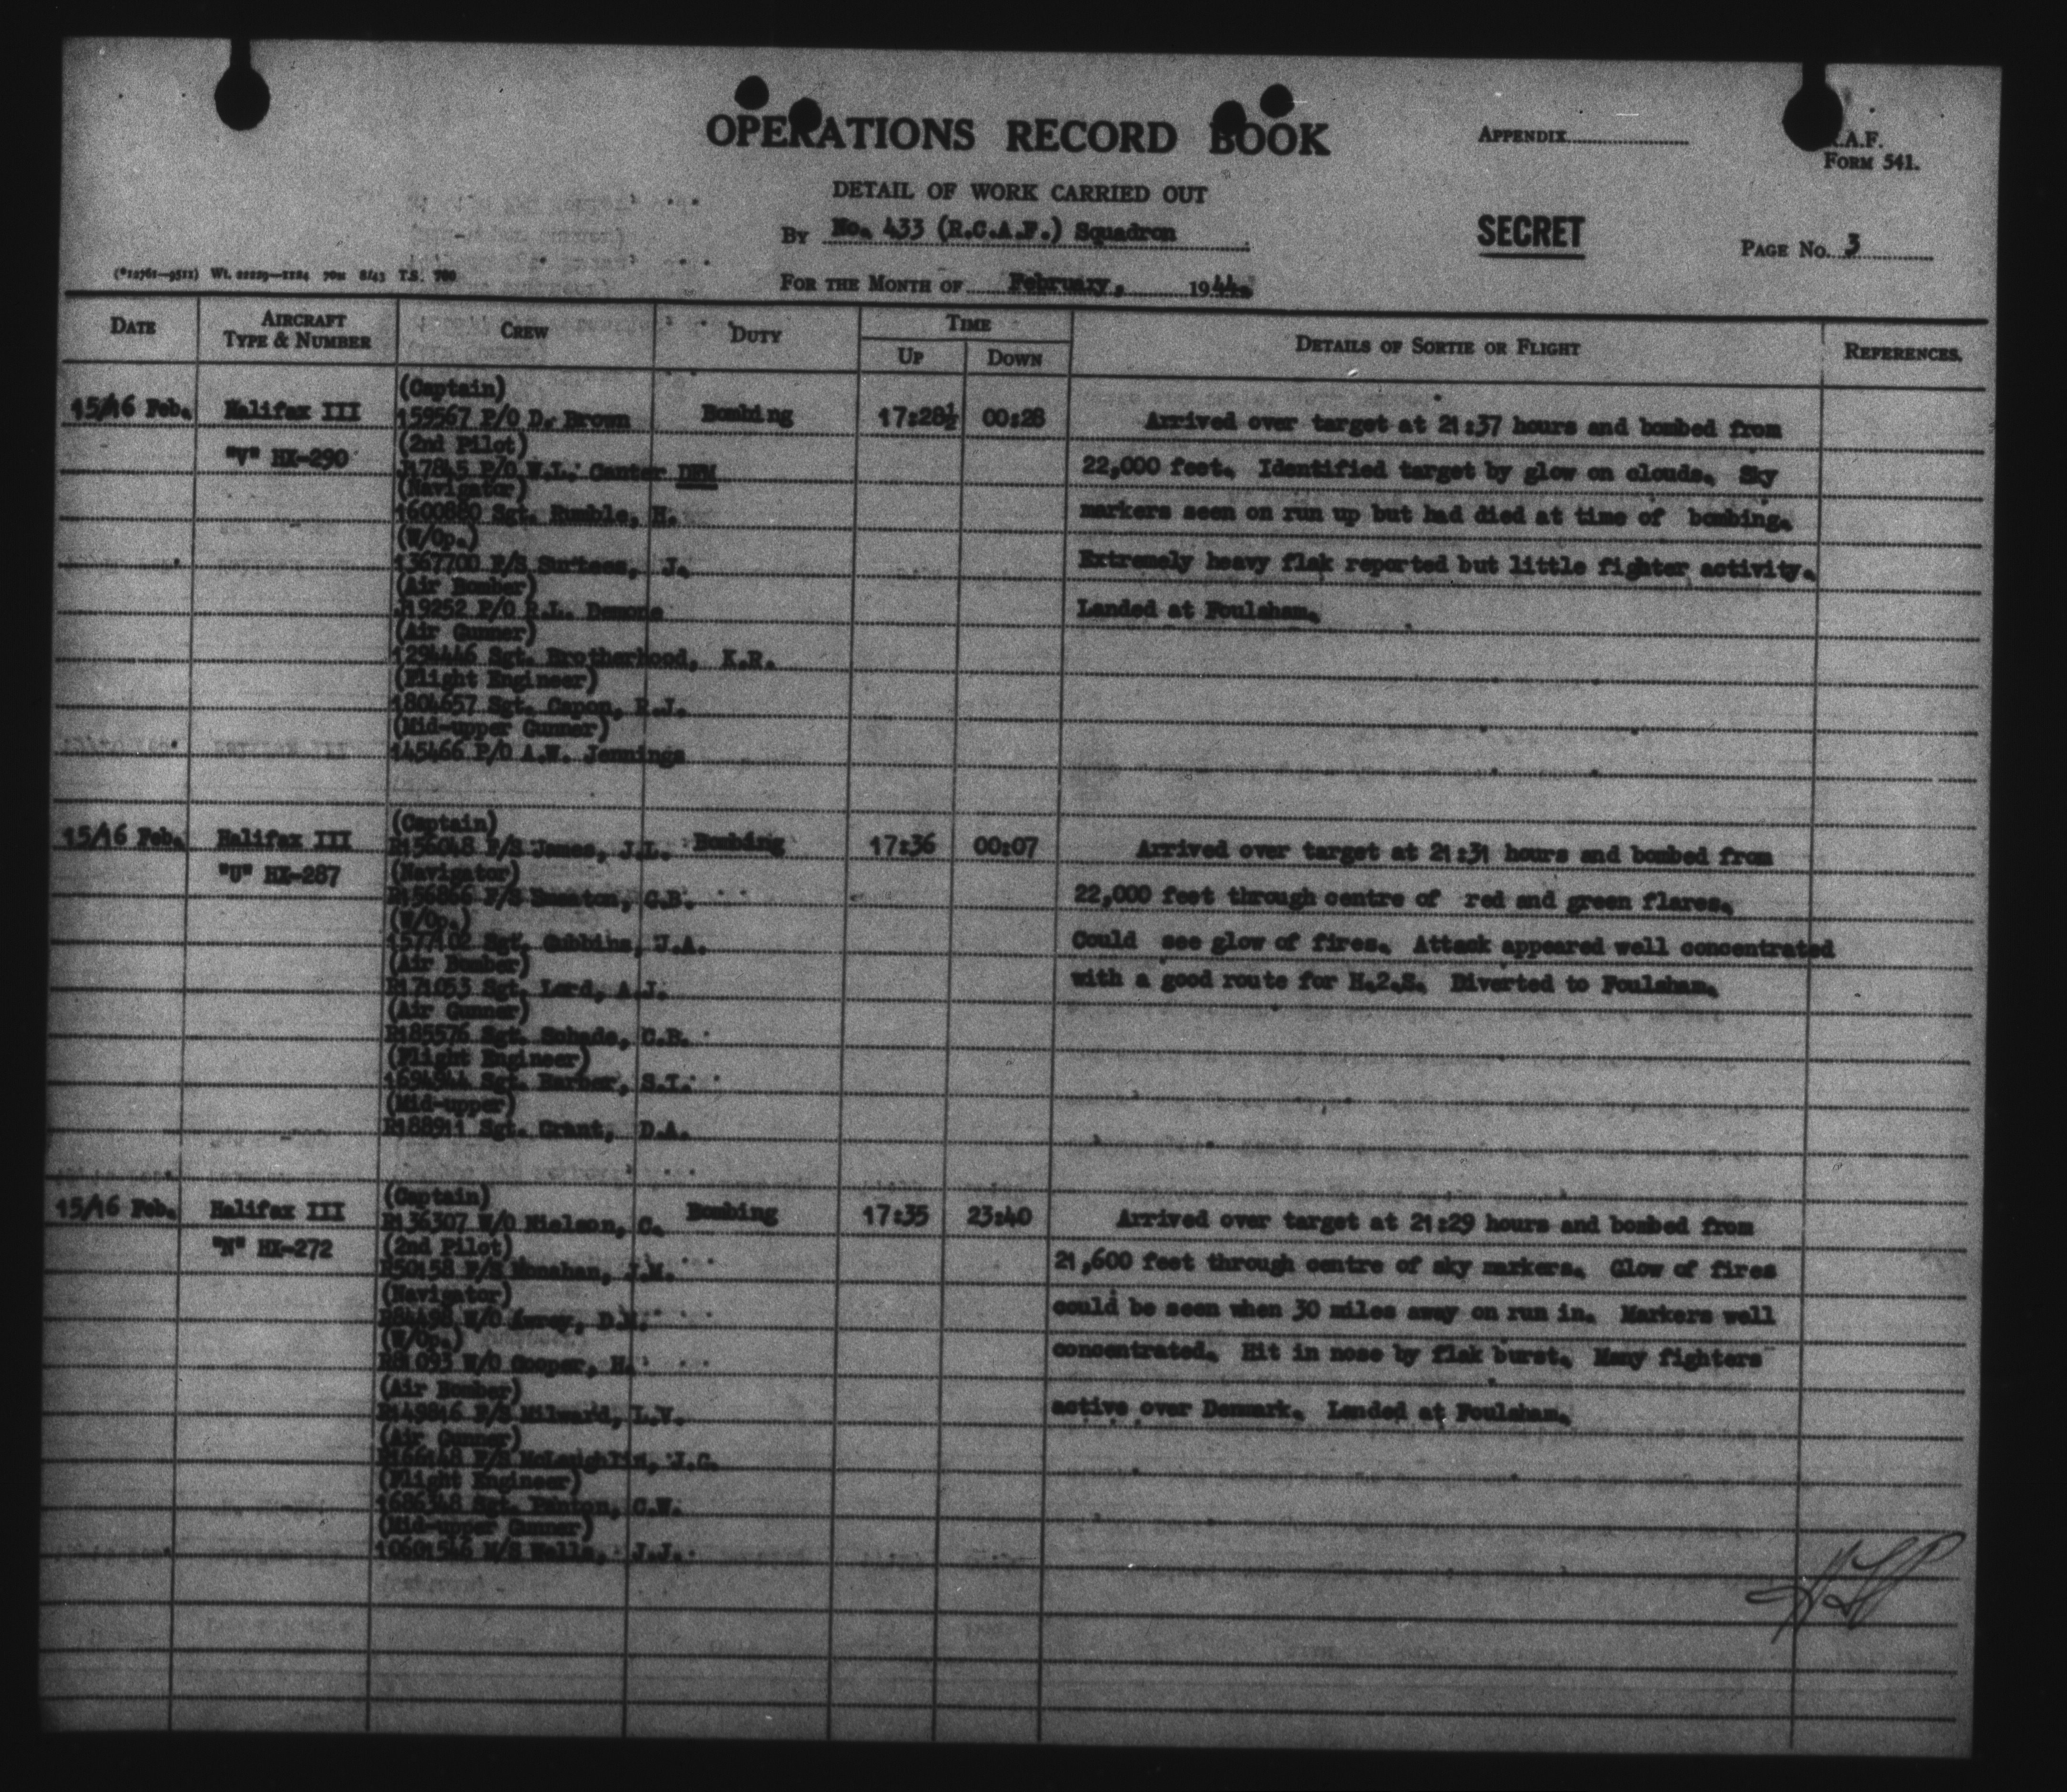 OPERATIONS RECORD BOOK
APPENDIX
R.A.F.
FORM 541.
DETAIL OF WORK CARRIED OUT
By No. 433 (R.C.A.F.) Squadron
SECRET
PAGE No. 3
(*12761—9511) Wt. 22229—1184 70M 8/43 T.S. 700
FOR THE MONTH OF February, 1944.
DATE
AIRCRAFT TYPE & NUMBER
CREW
DUTY
TIME
UP
DOWN
DETAILS OF SORTIE OR FLIGHT
REFERENCES.
15/16 Feb.
Halifax III
"V" HX-290
(Captain)
159567 P/O D. Brown
(2nd Pilot)
J17845 P/O W.L. Canter DFM
(Navigator)
1600880 Sgt. Rumble, H.
(W/Op.)
1367700 F/S Surtees, J.
(Air Bomber)
J19252 P/O R.L. Demone
(Air Gunner)
1294446 Sgt. Brotherhood, K.R.
(Flight Engineer)
1804657 Sgt. Capon, R.J.
(Mid-upper Gunner)
145466 P/O A.W. Jennings
Bombing
17:28½
00:28
Arrived over target at 21:37 hours and bombed from
22,000 feet. Identified target by glow on clouds. Sky
markers seen on run up but had died at time of bombing.
Extremely heavy flak reported but little fighter activity.
Landed at Foulsham.
15/16 Feb.
Halifax III
"U" HX-287
(Captain)
R156048 F/S James, J.L.
(Navigator)
R156866 F/S C.B.
(W/Op.)
1577102 Sgt. Gubbins, J.A.
(Air Bomber)
R171053 Sgt. Lord, A.J.
(Air Gunner)
R185576 Sgt. Schade, C.R.
(Flight Engineer)
1694944 Sgt. Barber, S.T.
(Mid-upper)
R188911 Sgt. Grant, D.A.
Bombing
17:36
00:07
Arrived over target at 21:31 hours and bombed from
22,000 feet through centre of red and green flares.
Could see glow of fires. Attack appeared well concentrated
with a good route for H.2.S. Diverted to Foulsham.
15/16 Feb.
Halifax III
"N" HX-272
(Captain)
R136307 W/O Nielson, C.
(2nd Pilot)
R50158 F/S Monahan, J.M.
(Navigator)
R84498 W/O Awrey, D.M.
(W/Op.)
R81093 W/O Cooper, H.
(Air Bomber)
R149846 F/S Milward, L.V.
(Air Gunner)
R166148 F/S McLaughlin, J.C.
(Flight Engineer)
1686348 Sgt. Panton, C.W.
(Mid-upper Gunner)
10601546 M/S Wells, J.J.
Bombing
17:35
23:40
Arrived over target at 21:29 hours and bombed from
21,600 feet through centre of sky markers. Glow of fires
could be seen when 30 miles away on run in. Markers well
concentrated. Hit in nose by flak burst. Many fighters
active over Denmark. Landed at Foulsham.